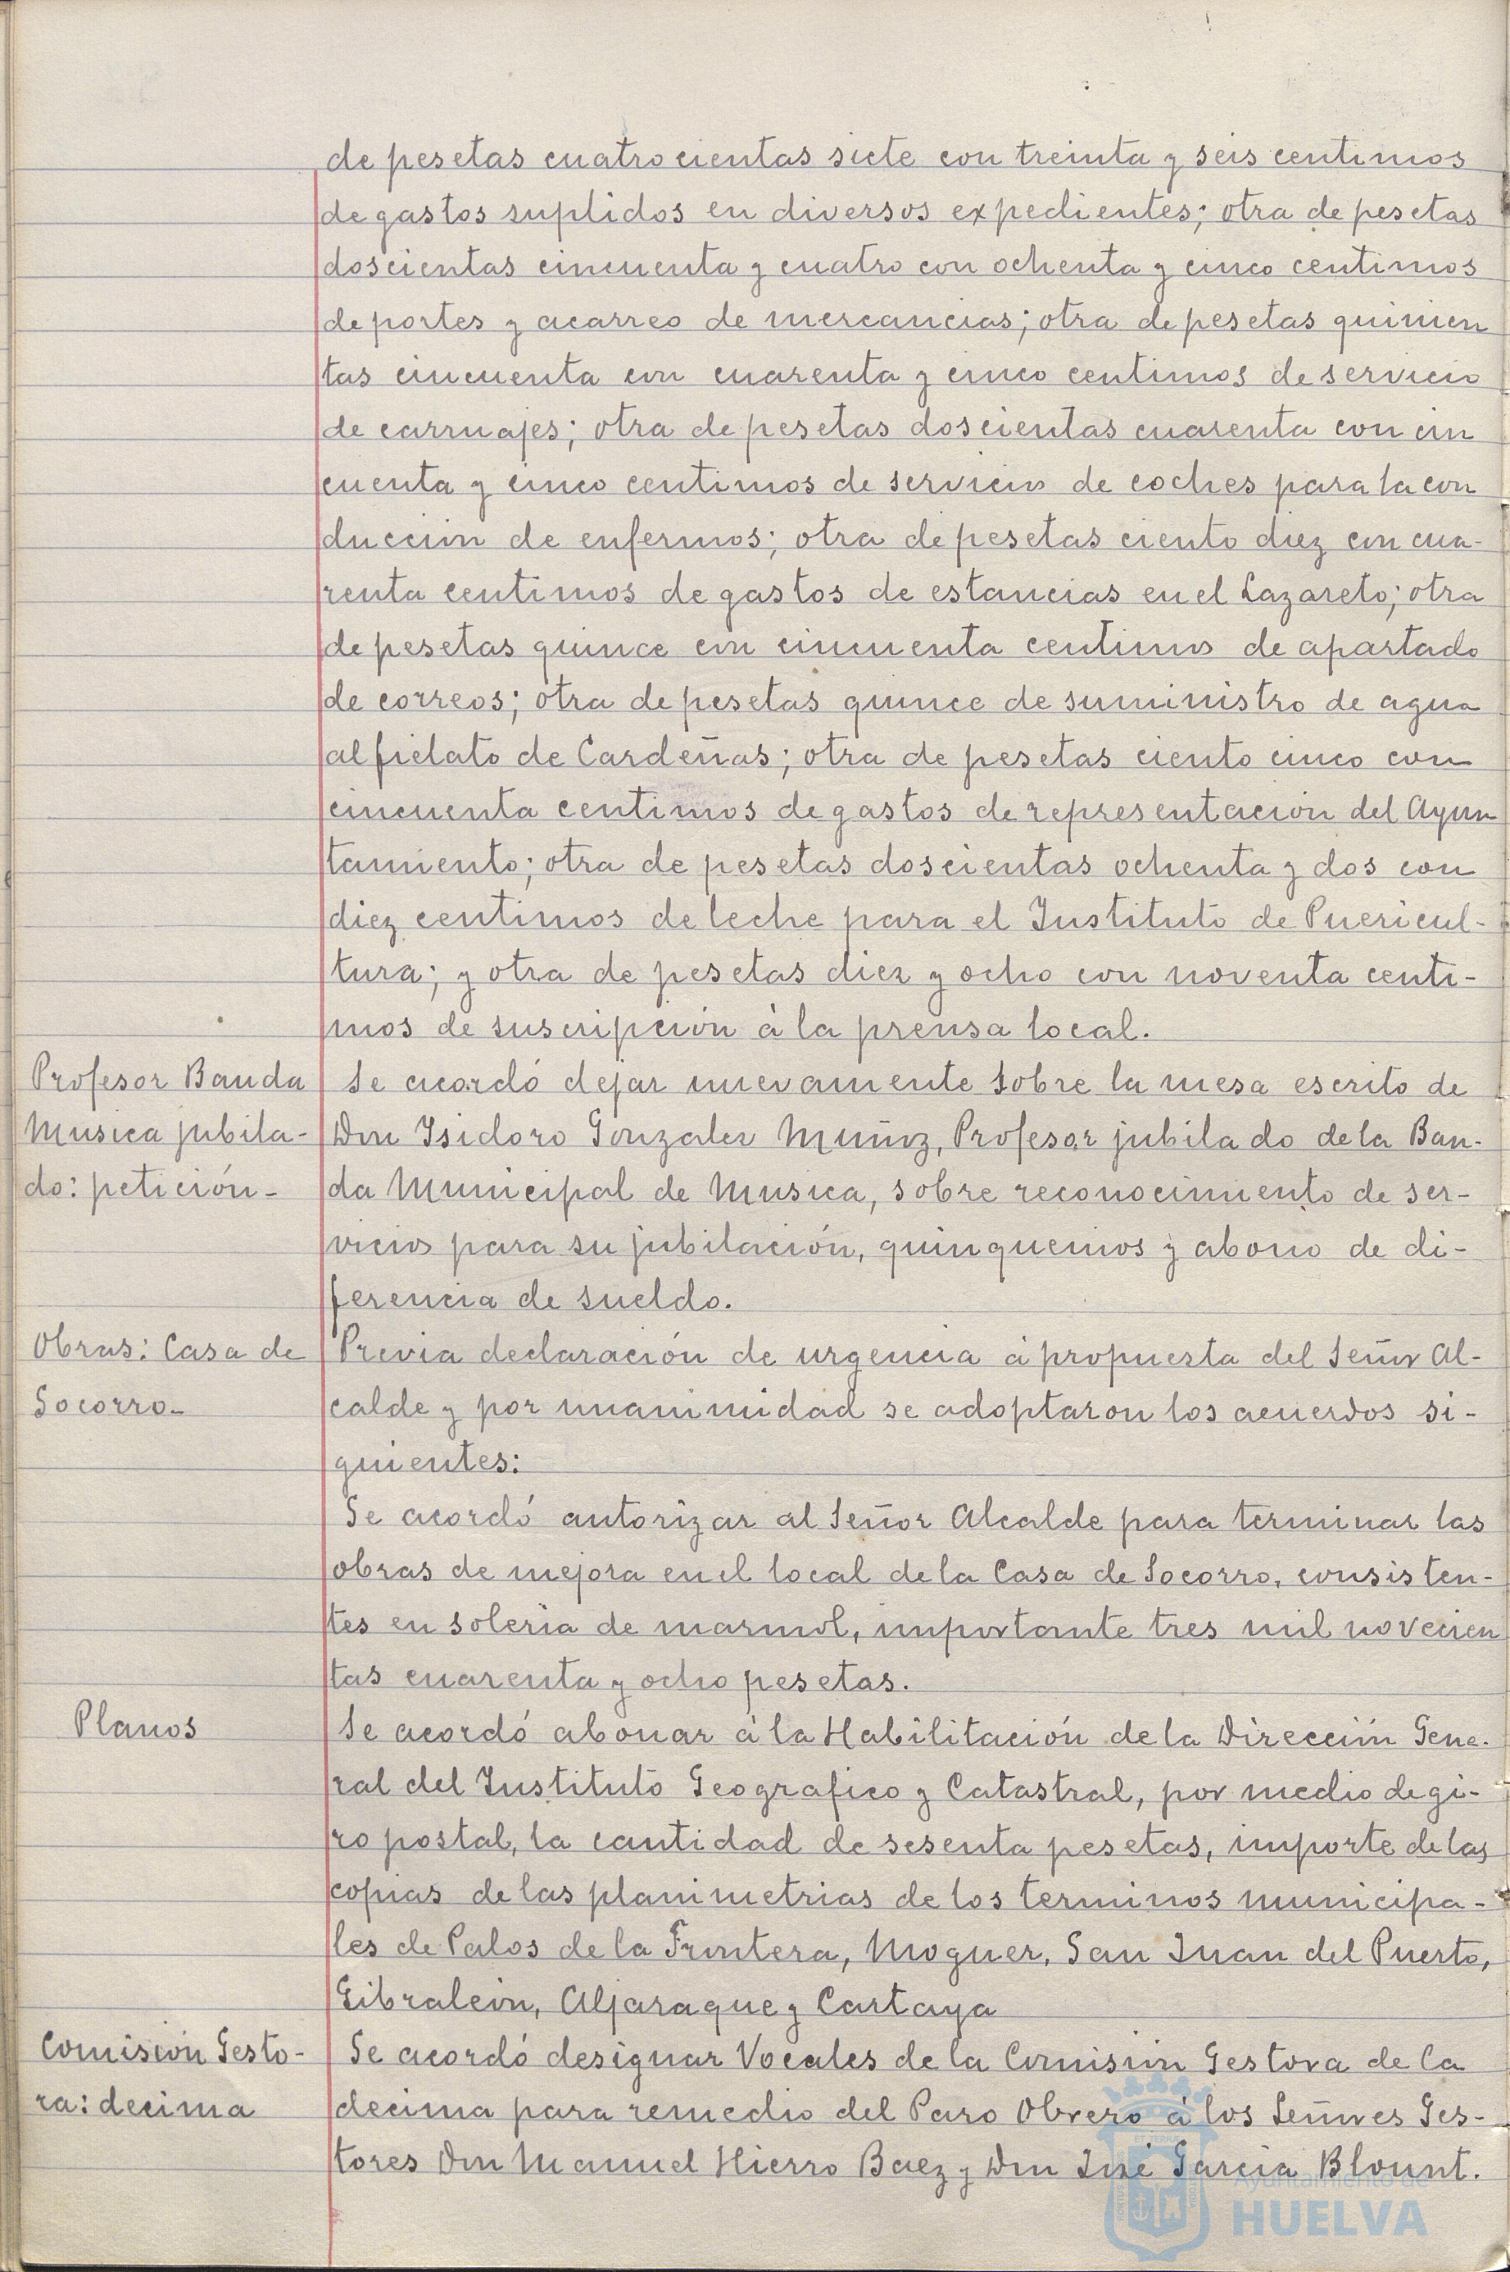 de pesetas cuatrocientas siete con treinta y seis centimos
de gastos suplidos en diversos expedientes; otra de pesetas
doscientas cincuenta y cuatro con ochenta y cinco centimos
de portes y acarreo de mercancias; otra de pesetas quinien
tas cincuenta con cuarenta y cinco centimos de servicio
de carruajes; otra de pesetas doscientas cuarenta con cin
cuenta y cinco centimos de servicio de coches para la con
ducción de enfermos; otra de pesetas ciento diez con cua-
renta centimos de gastos de estancias en el Lazareto; otra
de pesetas quince con cincuenta centimos de apartado
de correos; otra de pesetas quince de suministro de agua
al fielato de Cardeñas; otra de pesetas ciento cinco con
cincuenta centimos de gastos de representación del Ayun
tamiento; otra de pesetas doscientas ochenta y dos con
diez centimos de leche para el Instituto de Puericul-
tura; y otra de pesetas diez y ocho con noventa centi-
mos de suscripción á la prensa local.
Profesor Banda
Musica jubila-
do: petición-
Se acordó dejar nuevamente sobre la mesa escrito de
Don Isidoro Gonzalez Muñoz, Profesor jubilado de la Ban-
da Municipal de Musica, sobre reconocimiento de ser-
vicios para su jubilación, quinquenios y abono de di-
ferencia de sueldo.
Obras: Casa de
Socorro-
Previa declaración de urgencia á propuesta del Señor Al-
calde y por unanimidad se adoptaron los acuerdos si-
guientes:
Se acordó autorizar al Señor Alcalde para terminar las
obras de mejora en el local de la Casa de Socorro, consisten-
tes en soleria de marmol, importante tres mil novecien
tas cuarenta y ocho pesetas.
Planos
Se acordó abonar á la Habilitación de la Dirección Gene-
ral del Instituto Geografico y Catastral, por medio de gi-
ro postal, la cantidad de sesenta pesetas, importe de las
copias de las planimetrias de los terminos municipa-
les de Palos de la Frontera, Moguer, San Juan del Puerto,
Gibraleón, Aljaraque y Cartaya
Comisión Gesto-
ra: decima
Se acordó designar Vocales de la Comisión Gestora de la
decima para remedio del Paro Obrero á los Señores Ges-
tores Don Manuel Hierro Baez y Don José Garcia Blount.
Ayuntamiento de
HUELVA